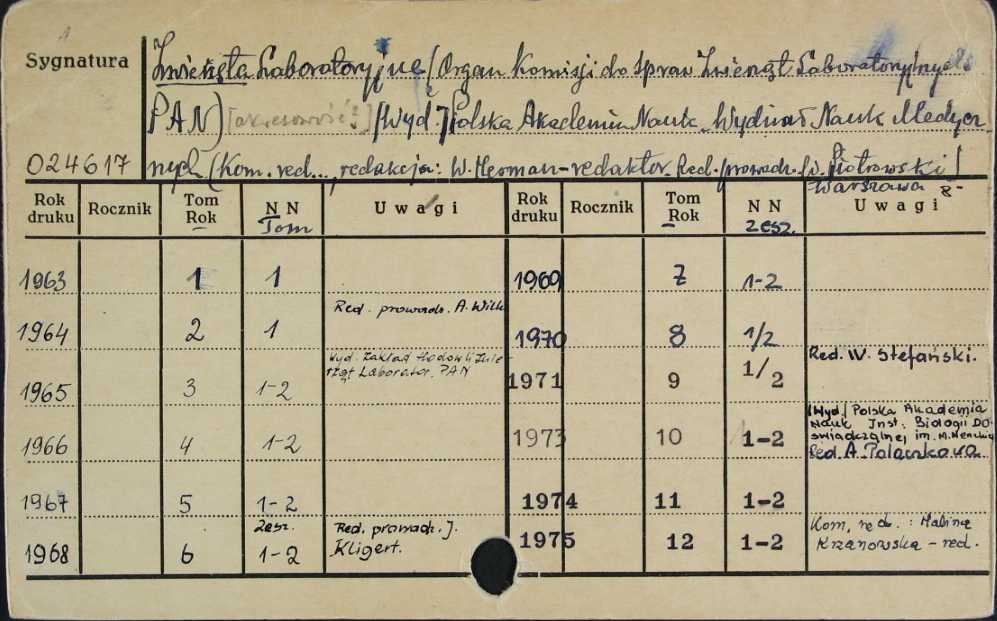 Sygnatura
Zwierzęta Laboratoryjne (Organ Komisji do Spraw Zwierząt Laboratoryjnych
PAN) [okresowość?] /Wyd./ Polska Akademia Nauk. Wydział Nauk Medycz
024617 nych (Kom. red..., redakcja: W. Herman - redaktor. Red. prowadz. W. Piotrowski/
Warszawa 8-
Rok druku Rocznik Tom Rok N N Tom Uwagi Rok druku Rocznik Tom Rok N N zesz. Uwagi
1963 1 1 1969 7 1-2
Red. prowadz. A. Wilk
1964 2 1 1970 8 1/2
Wyd. Zakład Hodowli Zwie- Red. W. Stefański.
rząt Laborator. PAN
1965 3 1-2 1971 9 1/2
/Wyd./ Polska Akademia
Nauk Inst. Biologii Do-
1966 4 1-2 1973 10 1-2 świadczalnej im. M. Nenckiego
Red. A.
1967 5 1-2 1974 11 1-2
zesz. Red. prowadz. J. Kom. red. : Halina
1968 6 1-2 Kligert. 1975 12 1-2 Krzanowska - red.